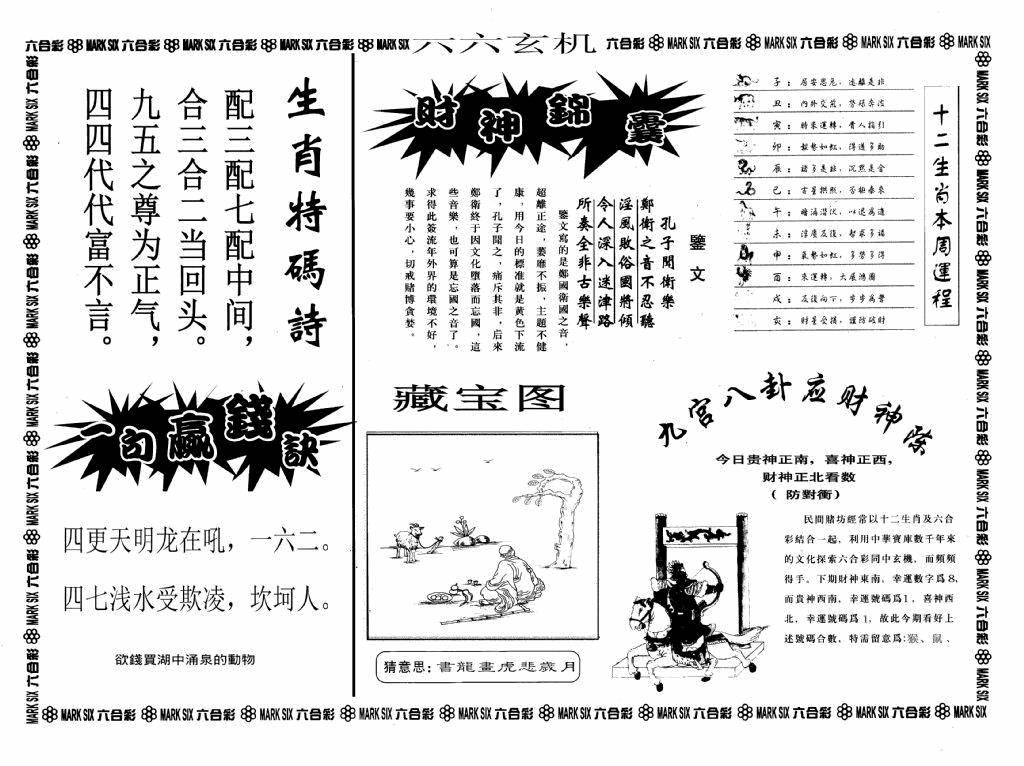 六合彩 MARK SIX 六合彩 MARK SIX 六合彩 MARK SIX 六合彩 MARK SIX
六六玄机
六合彩 MARK SIX 六合彩 MARK SIX 六合彩 MARK SIX 六合彩 MARK SIX
生肖特碼詩
配三配七配中间，
合三合二当回头。
九五之尊为正气，
四四代代富不言。
一句贏錢訣
四更天明龙在吼，一六二。
四七浅水受欺凌，坎坷人。
欲錢買湖中涌泉的動物
財神錦囊
鑒文
孔子聞衛樂
鄭衛之音不忍聽
淫風敗俗國將傾
令人深入迷津路
所奏全非古樂聲
鑒文寫的是鄭國衛國之音，
超離正途，萎靡不振，主題不健
康，用今日的標准就是黄色下流
了，孔子聞之，痛斥其非，后來
鄭衛終于因文化墮落而忘國，這
些音樂，也可算是忘國之音了。
求得此簽流年外界的環境不好，
幾事要小心，切戒賭博貪婪。
十二生肖本周運程
子：居安思危，遠離是非
丑：内外交煎，勞碌奔波
寅：時來運轉，貴人指引
卯：
辰：諸多是非，沉默是金
巳：吉星拱照，否極泰來
午：
未：
申：氣勢如虹，多勞多得
酉：來運轉，大展鴻圖
戌：
亥：財星受損，謹防破財
藏宝图
猜意思：書龍畫虎悲歲月
九宫八卦应财神篇
今日贵神正南，喜神正西，
财神正北看数
（防對衝）
民間賭坊經常以十二生肖及六合
彩結合一起，利用中華寶庫數千年來
的文化探索六合彩同中玄機，而頻頻
得手。下期財神東南，幸運數字爲8，
而貴神西南，幸運號碼爲1，喜神西
北，幸運號碼爲1，故此今期看好上
述號碼合數，特需留意爲：猴、鼠、
MARK SIX 六合彩 MARK SIX 六合彩 MARK SIX 六合彩 MARK SIX 六合彩 MARK SIX 六合彩 MARK SIX 六合彩 MARK SIX 六合彩 MARK SIX 六合彩 MARK SIX 六合彩 MARK SIX